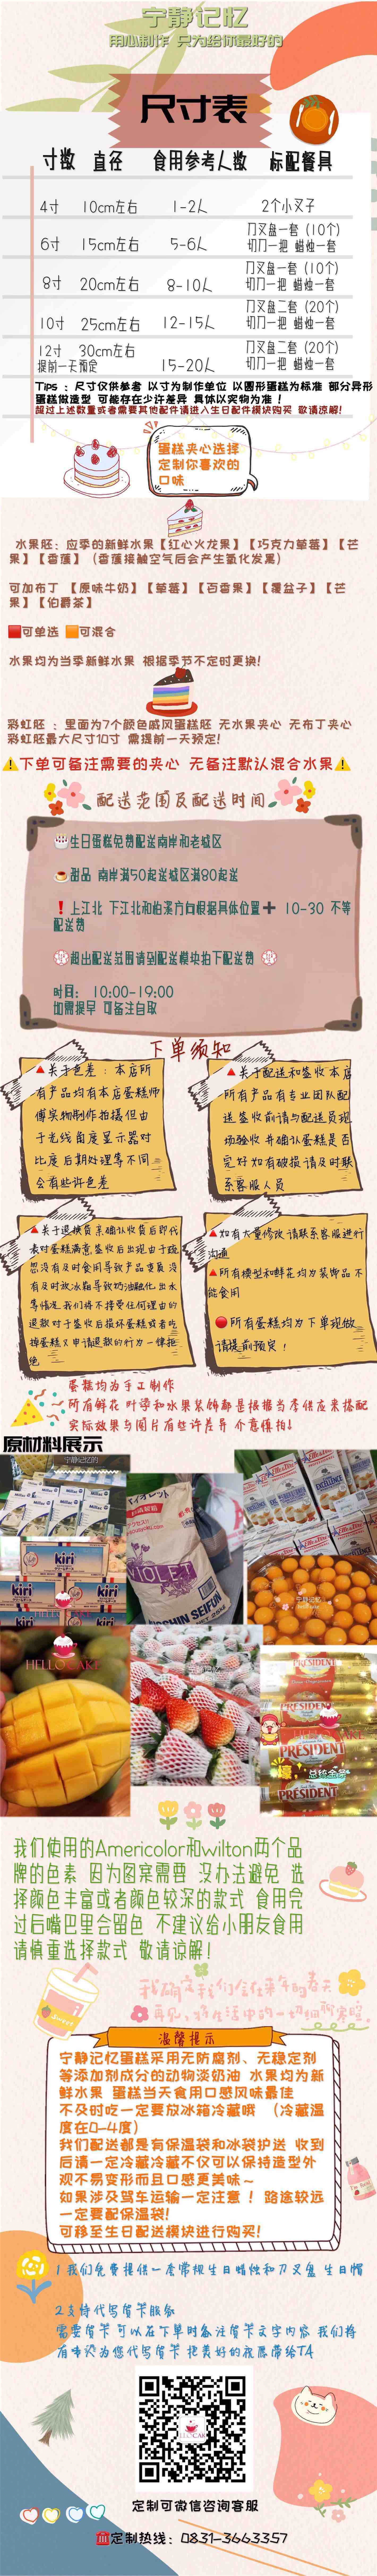 宁静记忆
用心制作 只为给你最好的
尺寸表
寸数 直径 食用参考人数 标配餐具
4寸 10cm左右 1-2人 2个小叉子
6寸 15cm左右 5-6人 刀叉盘一套（10个）
切刀一把 蜡烛一套
8寸 20cm左右 8-10人 刀叉盘一套（10个）
切刀一把 蜡烛一套
10寸 25cm左右 12-15人 刀叉盘二套（20个）
切刀一把 蜡烛一套
12寸 30cm左右
提前一天预定 15-20人 刀叉盘二套（20个）
切刀一把 蜡烛一套
Tips ：尺寸仅供参考 以寸为制作单位 以圆形蛋糕为标准 部分异形
蛋糕做造型 可能存在少许差异 具体以实物为准！
超过上述数量或者需要其他配件请进入生日配件模块购买 敬请谅解！
蛋糕夹心选择
定制你喜欢的
口味
水果胚：应季的新鲜水果【红心火龙果】【巧克力草莓】【芒
果】【香蕉】（香蕉接触空气后会产生氧化发黑）
可加布丁 【原味牛奶】【草莓】【百香果】【覆盆子】【芒
果】【伯爵茶】
可单选 可混合
水果均为当季新鲜水果 根据季节不定时更换！
彩虹胚 ：里面为7个颜色戚风蛋糕胚 无水果夹心 无布丁夹心
彩虹胚最大尺寸10寸 需提前一天预定！
下单可备注需要的夹心 无备注默认混合水果
配送范围及配送时间
生日蛋糕免费配送南岸和老城区
甜品 南岸满50起送城区满80起送
上江北 下江北和柏溪方向根据具体位置➕ 10-30 不等
配送费
超出配送范围请到配送模块拍下配送费
时间： 10:00-19:00
如需提早 可备注自取
下单须知
关于色差：本店所
有产品均有本店蛋糕师
傅实物制作拍摄但由
于光线角度显示器对
比度后期处理等不同
会有些许色差
关于配送和签收本店
所有产品有专业团队配
送签收前请与配送员现
场验收并确认蛋糕是否
完好如有破损请及时联
系客服人员
关于退换货亲确认收货后即代
表对蛋糕满意签收后出现由于疏
忽没有及时食用导致产品变质没
有及时放冰箱导致奶油融化出水
等情况我们将不接受任何理由的
退款对于签收后损坏蛋糕或者吃
掉蛋糕又申请退款的行为一律拒
绝
如有大量修改请联系客服进行
沟通
所有模型和鲜花均为装饰品不
能食用
所有蛋糕均为下单现做
请提前预定！
蛋糕均为手工制作
所有鲜花 叶子和水果装饰都是根据当季供应来搭配
实际效果与图片有些许差异 介意慎拍！
原材料展示
宁静记忆的
Milkana
kiri
kiri
kiri
HELLO CAKE
VIOLET
NISSHIN SEIFUN
宁静记忆
HELLO CAKE
PRESIDENT
PRESIDENT
PRESIDENT
壕
总统金条
我们使用的Americolor和wilton两个品
牌的色素 因为图案需要 没办法避免 选
择颜色丰富或者颜色较深的款式 食用完
过后嘴巴里会留色 不建议给小朋友食用
请慎重选择款式 敬请谅解！
Sweet
温馨提示
宁静记忆蛋糕采用无防腐剂、无稳定剂
等添加剂成分的动物淡奶油 水果均为新
鲜水果 蛋糕当天食用口感风味最佳
不及时吃一定要放冰箱冷藏哦 （冷藏温
度在0-4度）
我们配送都是有保温袋和冰袋护送 收到
后请一定冷藏冷藏不仅可以保持造型外
观不易变形而且口感更美味~
如果涉及驾车运输一定注意！路途较远
一定要配保温袋！
可移至生日配送模块进行购买！
1 我们免费提供一套常规生日蜡烛和刀叉盘 生日帽
2 支持代写贺卡服务
需要贺卡可以在下单时备注贺卡文字内容 我们将
用心为您代写贺卡 把美好的祝愿带给TA
定制可微信咨询客服
定制热线：0831-3663357